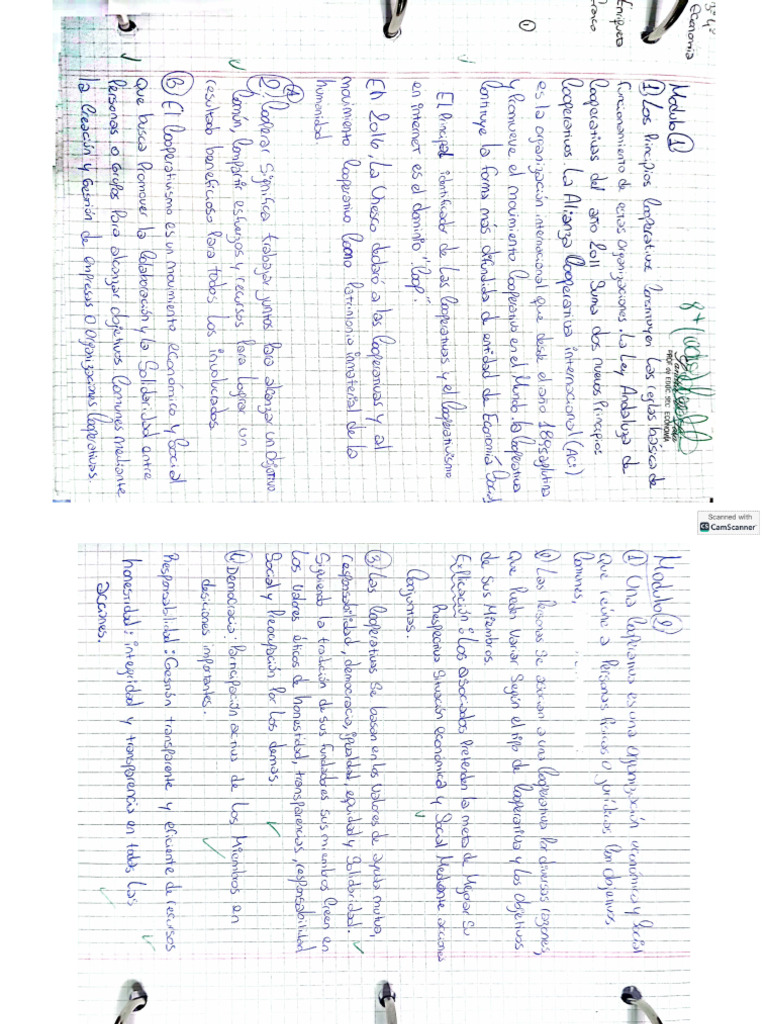 3º 4º
Economia
Enriqueta
Franco
①
8+
PROF. de EDUC. SEC. ECONOMÍA
Modulo ①
① Los Principios Cooperativos Constituyen Las reglas básica de
funcionamiento de estas organizaciones. La Ley Andaluza de
Cooperativas del año 2011 Suma dos nuevos Principios
Cooperativos. La Alianza Cooperativa internacional (ACI)
es la organización internacional que desde el año 1895 aglutina
y Promueve el movimiento Cooperativo en el Mundo. La Cooperativa
Contituye la forma más difundida de entidad de Economía Social
El Principal identificador de Las Cooperativas y el Cooperativismo
en internet es el dominio ".Coop".
En 2016, La Unesco declaró a las Cooperativas y al
movimiento Cooperativo Como Patrimonio inmaterial de la
humanidad.
② A) Cooperar Significa trabajar juntos Para alcanzar un objetivo
Común, Compartir esfuerzos y recursos Para lograr un
resultado beneficioso Para todos Los involucrados.
B) El Cooperativismo es un movimiento económico y Social
que busca Promover la Colaboración y la Solidaridad entre
Personas o Grupos Para alcanzar objetivos Comunes mediante
La Creación y Gestión de empresas o organizaciones Cooperativas.
Scanned with
CS CamScanner
Modulo ②
① Una Cooperativa es una organización económica y Social
que reúne a Personas físicas o jurídicas Con objetivos,
Comunes,
② Las Personas Se asocian a una Cooperativa Por diversas razones,
que Pueden Variar Según el tipo de Cooperativa y Los objetivos.
de Sus Miembros.
Explicación: Los asociados Pretenden la meta de Mejorar Su
Respectiva Situación económica y Social Mediante acciones
Conjuntas.
③ Las Cooperativas Se basan en Los Valores de ayuda mutua,
responsabilidad, democracia, igualdad, equidad y Solidaridad.
Siguiendo la tradición de sus fundadores sus miembros Creen en
Los Valores éticos de honestidad, transparencia, responsabilidad
Social y Preocupación Por Los demas.
④ Democracia: Participación activa de Los Miembros en
desiciones importantes.
Responsabilidad: Gestión transparente y eficiente de recursos
honestidad: integridad y transparencia en todas Las
acciones.